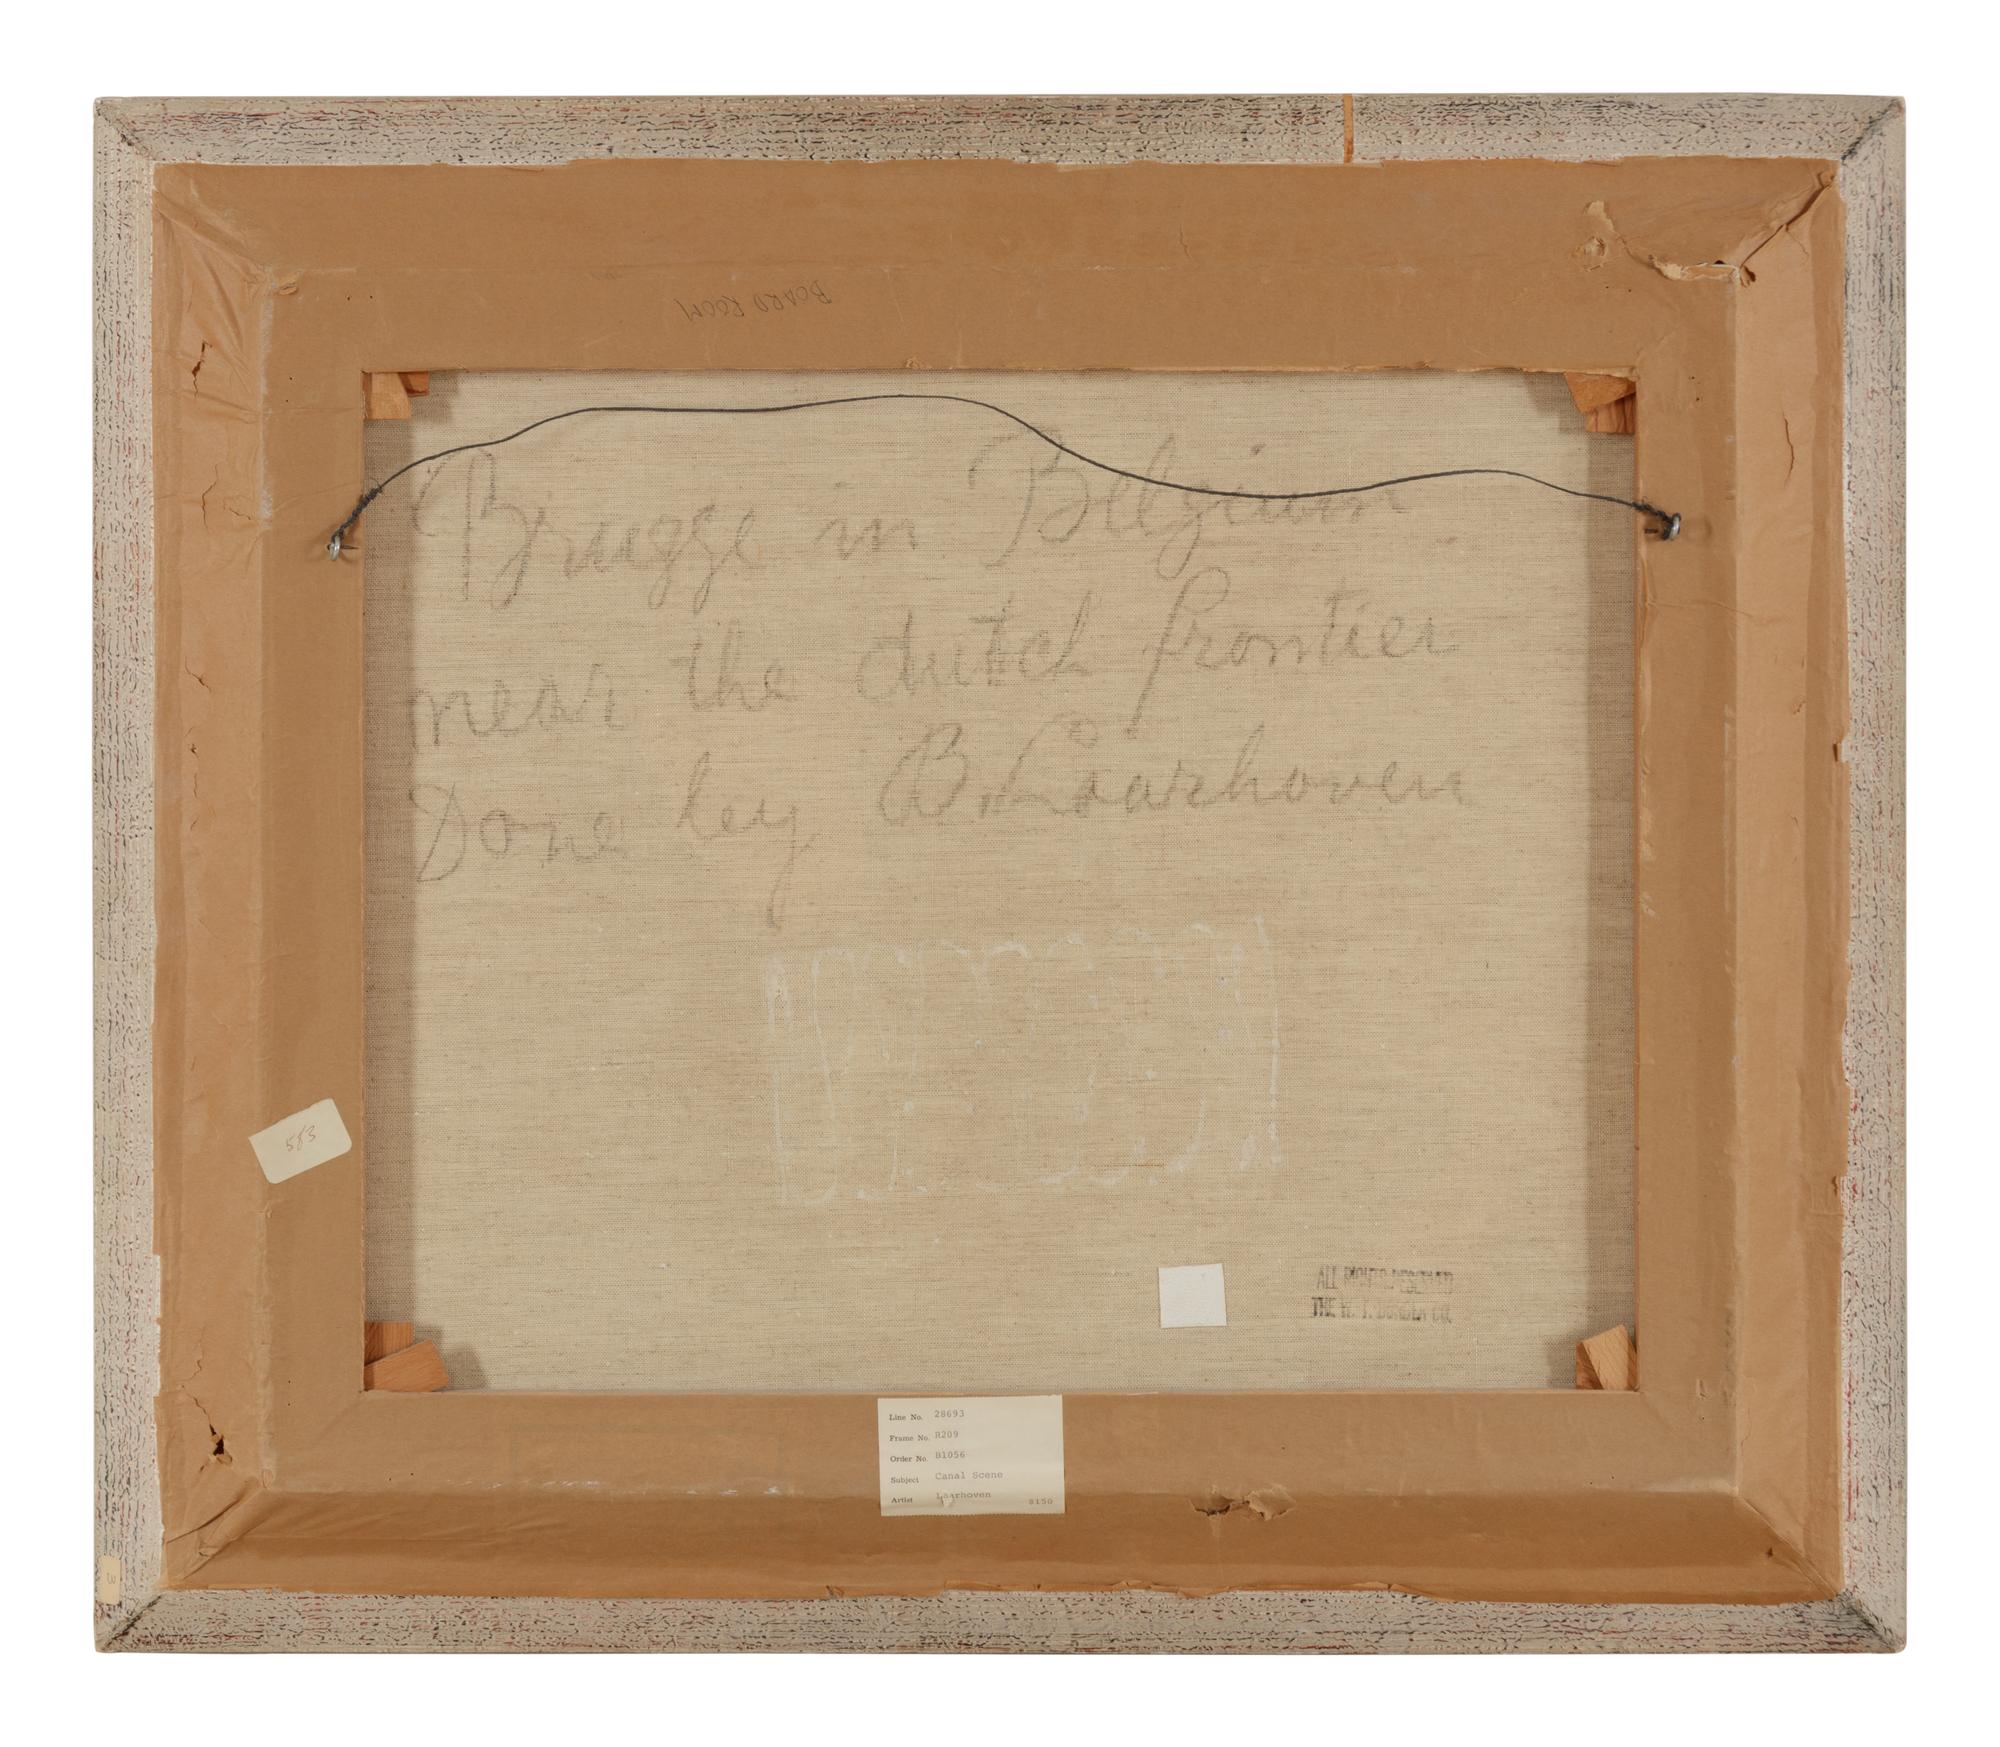 BOARD ROOM
Brugge in Belgium
near the dutch frontier
Done by B. Laarhoven
583
ALL RIGHTS RESERVED
THE CO.
Line No. 28693
Frame No. R209
Order No. B1056
Subject Canal Scene
Artist Laarhoven 8150
3